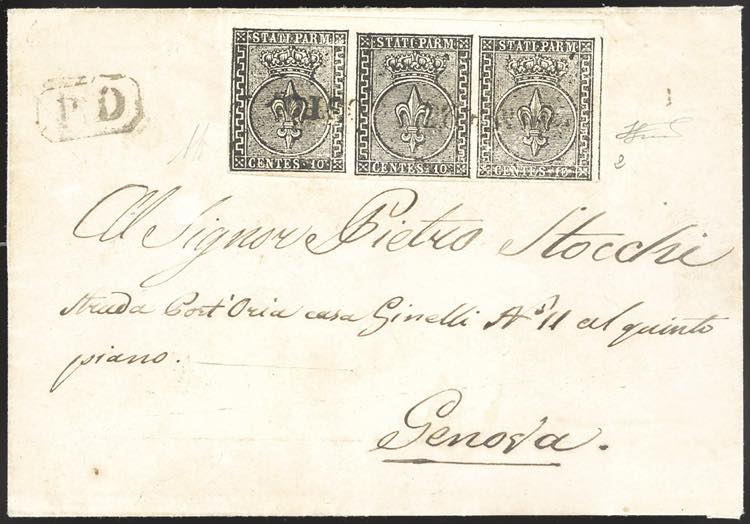 STATI PARM STATI PARM STATI PARM
CENTES. 10 CENTES. 10 CENTES. 10
P D
Al Signor Pietro Stocchi
Strada Port'Oria casa Ginelli N° 11 al quinto
piano.
Genova.
2